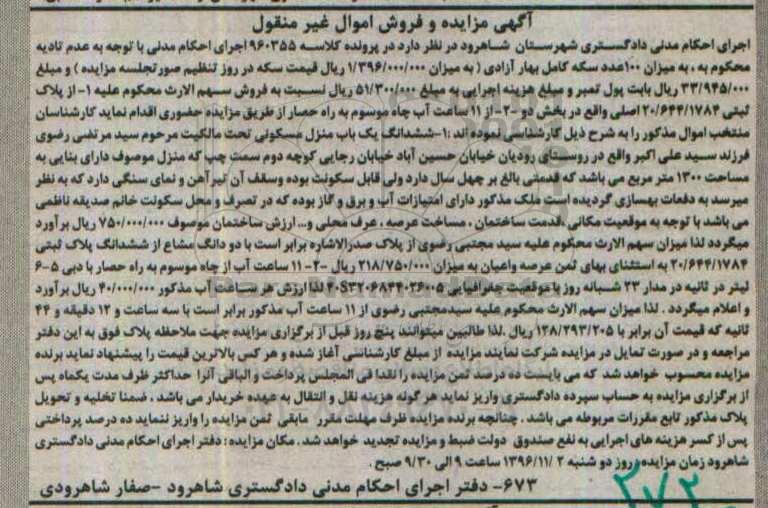 آگهی مزایده و فروش اموال غیر منقول
اجرای احکام مدنی دادگستری شهرستان شاهرود در نظر دارد در پرونده کلاسه ۹۶۰۳۵۵ اجرای احکام مدنی با توجه به عدم تادیه
محکوم به ، به میزان ۱۰۰عدد سکه کامل بهار آزادی ( به میزان ۱/۳۹۶/۰۰۰/۰۰۰ ریال قیمت سکه در روز تنظیم صورتجلسه مزایده ) و مبلغ
۳۳/۹۴۵/۰۰۰ ریال بابت پول تمبر و مبلغ هزینه اجرایی به مبلغ ۵۱/۳۰۰/۰۰۰ ریال نسبت به فروش سهم الارث محکوم علیه ۱- از پلاک
ثبتی ۲۰/۶۴۴/۱۷۸۴ اصلی واقع در بخش دو -۲- از ۱۱ ساعت آب چاه موسوم به راه حصار از طریق مزایده حضوری اقدام نماید کارشناسان
منتخب اموال مذکور را به شرح ذیل کارشناسی نموده اند :۱-ششدانگ یک باب منزل مسکونی تحت مالکیت مرحوم سید مرتضی رضوی
فرزند سید علی اکبر واقع در روستای رودیان خیابان حسین آباد خیابان رجایی کوچه دوم سمت چپ که منزل موصوف دارای بنایی به
مساحت ۱۳۰۰ متر مربع می باشد که قدمتی بالغ بر چهل سال دارد ولی قابل سکونت بوده وسقف آن تیرآهن و نمای سنگی دارد که به نظر
میرسد به دفعات بهسازی گردیده است ملک مذکور دارای امتیازات آب و برق و گاز بوده که در تصرف و محل سکونت خانم صدیقه ناظمی
می باشد با توجه به موقعیت مکانی ،قدمت ساختمان ، مساحت عرصه ، عرف محلی و... ارزش ساختمان موصوف ۷۵۰/۰۰۰/۰۰۰ ریال برآورد
میگردد لذا میزان سهم الارث محکوم علیه سید مجتبی رضوی از پلاک صدرالاشاره برابر است با دو دانگ مشاع از ششدانگ پلاک ثبتی
۲۰/۶۴۴/۱۷۸۴ به استثنای بهای ثمن عرصه واعیان به میزان ۲۱۸/۷۵۰/۰۰۰ ریال -۲- ۱۱ ساعت آب از چاه موسوم به راه حصار با دبی ۵-۶
لیتر در ثانیه در مدار ۲۳ شبانه روز با موقعیت جغرافیایی ۴۰S۳۲۰۶۸۴۴۰۳۶۰۰۵ لذا ارزش هر ساعت آب مذکور ۴۰/۰۰۰/۰۰۰ ریال برآورد
و اعلام میگردد . لذا میزان سهم الارث محکوم علیه سیدمجتبی رضوی از ۱۱ ساعت آب مذکور برابر است با سه ساعت و ۱۲ دقیقه و ۴۴
ثانیه که قیمت آن برابر با ۱۲۸/۲۹۳/۲۰۵ ریال .لذا طالبین میتوانند پنج روز قبل از برگزاری مزایده جهت ملاحظه پلاک فوق به این دفتر
مراجعه و در صورت تمایل در مزایده شرکت نمایند مزایده از مبلغ کارشناسی آغاز شده و هر کس بالاترین قیمت را پیشنهاد نماید برنده
مزایده محسوب خواهد شد که می بایست ده درصد ثمن مزایده را نقدا فی المجلس پرداخت و الباقی آنرا حداکثر ظرف مدت یکماه پس
از برگزاری مزایده به حساب سپرده دادگستری واریز نماید هر گونه هزینه نقل و انتقال به عهده خریدار می باشد ، ضمنا تخلیه و تحویل
پلاک مذکور تابع مقررات مربوطه می باشد . چنانچه برنده مزایده ظرف مهلت مقرر مابقی ثمن مزایده را واریز ننماید ده درصد پرداختی
پس از کسر هزینه های اجرایی به نفع صندوق دولت ضبط و مزایده تجدید خواهد شد . مکان مزایده : دفتر اجرای احکام مدنی دادگستری
شاهرود زمان مزایده : روز دو شنبه ۱۳۹۶/۱۱/۲ ساعت ۹ الی ۹/۳۰ صبح .
۶۷۳- دفتر اجرای احکام مدنی دادگستری شاهرود -صفار شاهرودی